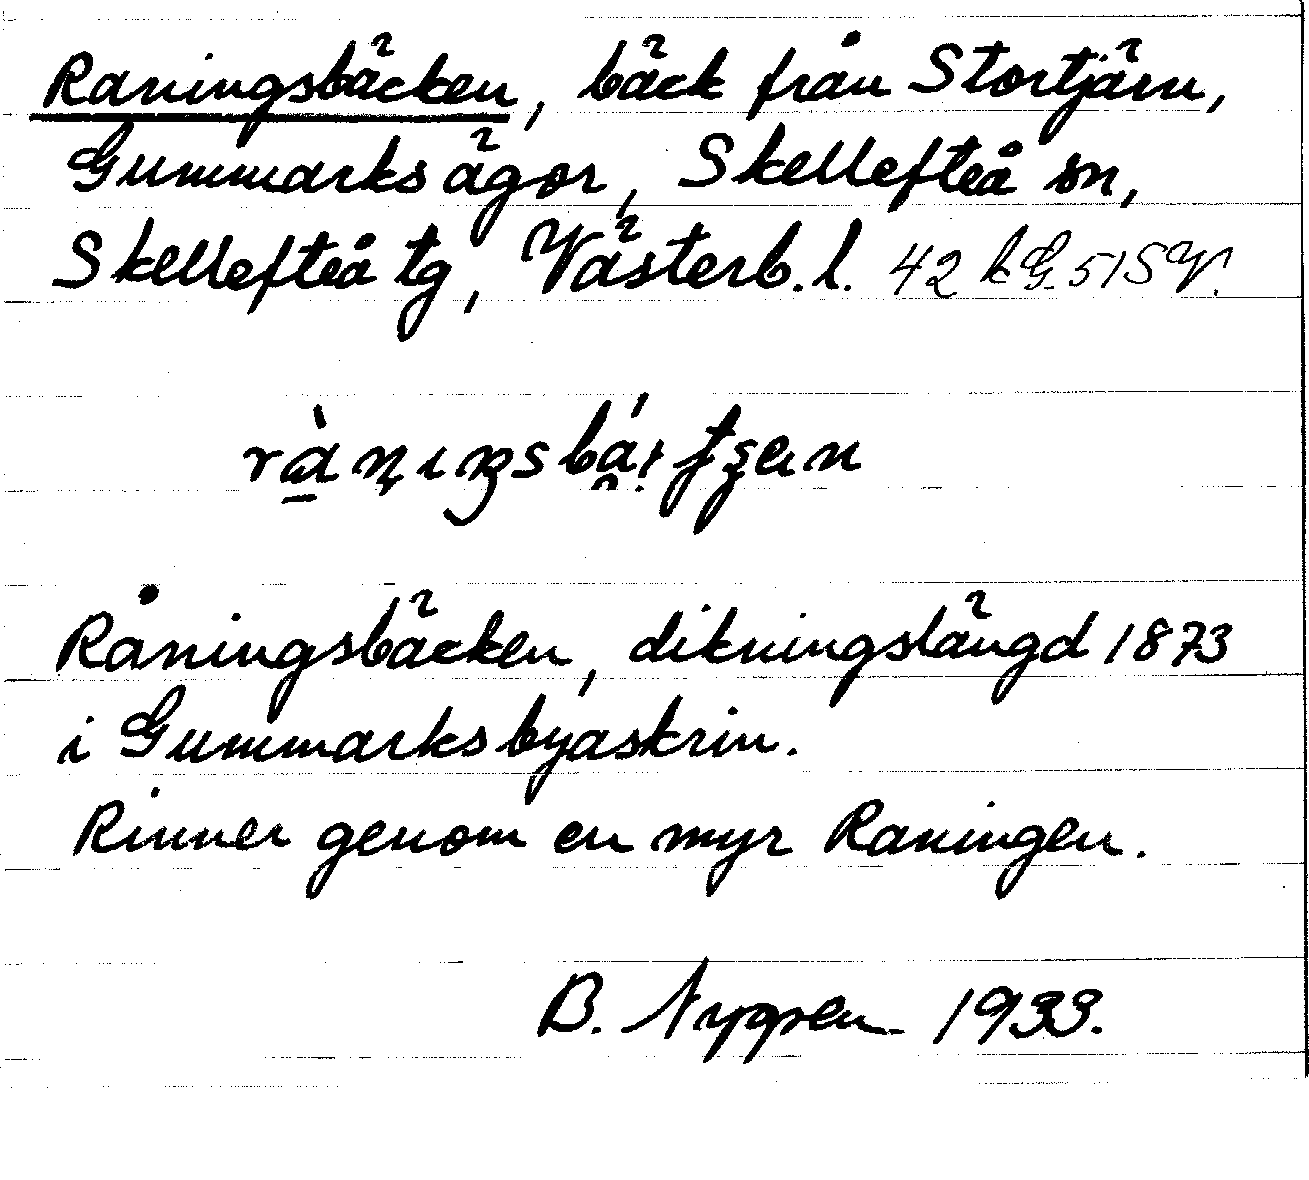 Raningsbäcken, bäck från Stortjärn,
Gummarks ägor, Skellefteå sn,
Skellefteå tg, Västerb. l. 42 k G. 51SV.
Råningsbäcken, dikningslängd 1873
i Gummarks byaskrin.
Rinner genom en myr Raningen.
B. Nygren 1933.